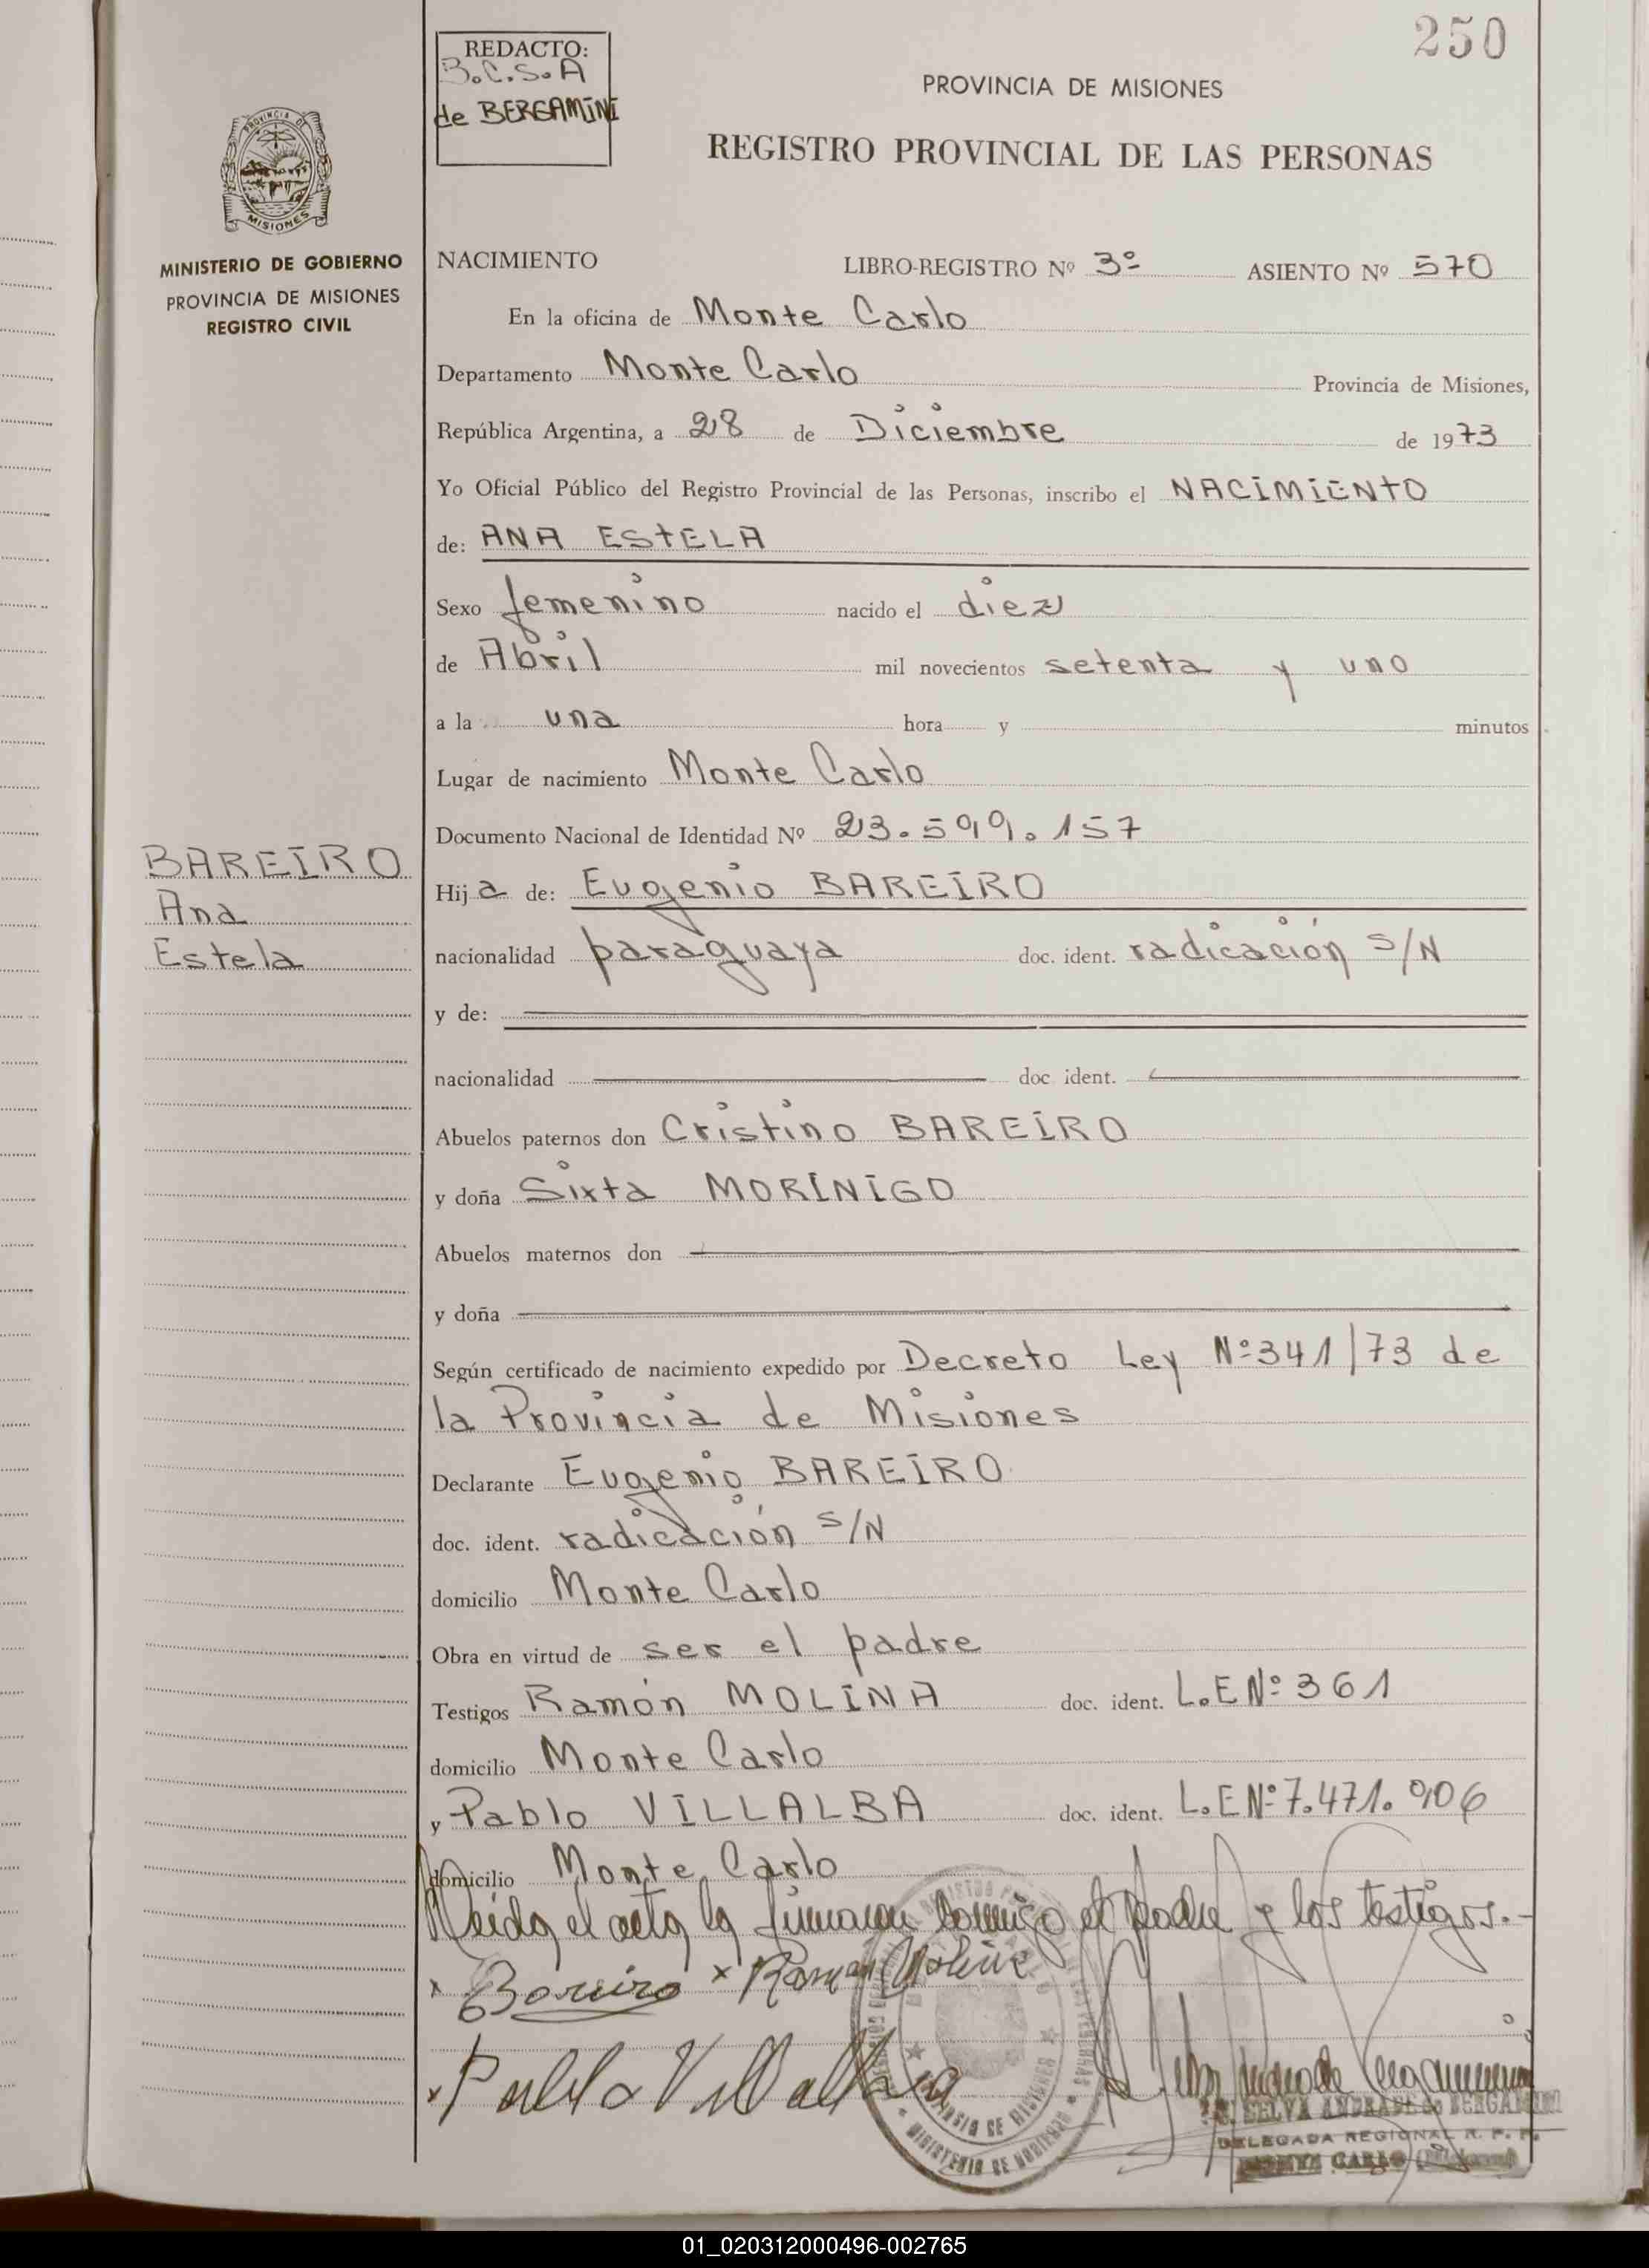 250
REDACTO:
B.C.S.A
de BERGAMINI
PROVINCIA DE MISIONES
REGISTRO PROVINCIAL DE LAS PERSONAS
PROVINCIA DE
MISIONES
MINISTERIO DE GOBIERNO
PROVINCIA DE MISIONES
REGISTRO CIVIL
NACIMIENTO LIBRO-REGISTRO Nº 3º ASIENTO Nº 570
En la oficina de Monte Carlo
Departamento Monte Carlo Provincia de Misiones,
República Argentina, a 28 de Diciembre de 1973
Yo Oficial Público del Registro Provincial de las Personas, inscribo el NACIMIENTO
de: ANA ESTELA
Sexo femenino nacido el diez
de Abril mil novecientos setenta y uno
a la una hora y minutos
Lugar de nacimiento Monte Carlo
Documento Nacional de Identidad Nº 23.599.157
BAREIRO
Ana
Estela
Hija de: Eugenio BAREIRO
nacionalidad paraguaya doc. ident. radicación S/N
y de:
nacionalidad doc ident.
Abuelos paternos don Cristino BAREIRO
y doña Sixta MORINIGO
Abuelos maternos don
y doña
Según certificado de nacimiento expedido por Decreto Ley Nº 341/73 de
la Provincia de Misiones
Declarante Eugenio BAREIRO
doc. ident. radicación S/N
domicilio Monte Carlo
Obra en virtud de ser el padre
Testigos Ramón MOLINA doc. ident. L.E Nº 361
domicilio Monte Carlo
y Pablo VILLALBA doc. ident. L.E Nº 7.471.906
domicilio Monte Carlo
Leida el acta la firmaron conmigo el padre y los testigos.-
x Bareiro x Ramon Molina
x Pablo Villalba
SELVA ANDRADE de BERGAMINI
DELEGADA REGIONAL R. P. P.
MONTE CARLO (Misiones)
MINISTERIO DE GOBIERNO
01_020312000496-002765